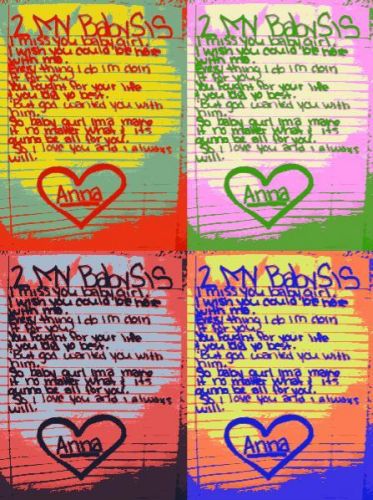 2 MY Baby SIS
I miss you baby girl,
I wish you could be here
with me.
Every thing I do im doin
it for you,
You fought for your life
& you did yo best.
But god wanted you with
him.
So baby gurl Ima make
it no matter what & its
gunna be all for you.
So I love you and i always
will.
Anna
2 MY Baby SIS
I miss you baby girl,
I wish you could be here
with me.
Every thing I do im doin
it for you,
You fought for your life
& you did yo best.
But god wanted you with
him.
So baby gurl Ima make
it no matter what & its
gunna be all for you.
So I love you and i always
will.
Anna
2 MY Baby SIS
I miss you baby girl,
I wish you could be here
with me.
Every thing I do im doin
it for you,
You fought for your life
& you did yo best.
But god wanted you with
him.
So baby gurl Ima make
it no matter what & its
gunna be all for you.
So I love you and i always
will.
Anna
2 MY Baby SIS
I miss you baby girl,
I wish you could be here
with me.
Every thing I do im doin
it for you,
You fought for your life
& you did yo best.
But god wanted you with
him.
So baby gurl Ima make
it no matter what & its
gunna be all for you.
So I love you and i always
will.
Anna